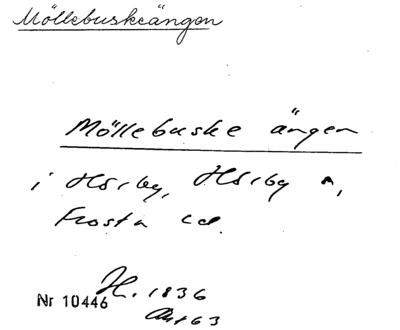 Möllebuskeängen
Möllebuske ängen
i Hörby, Hörby s,
Frosta hd.
H. 1836
Nr 10446
Akt 63